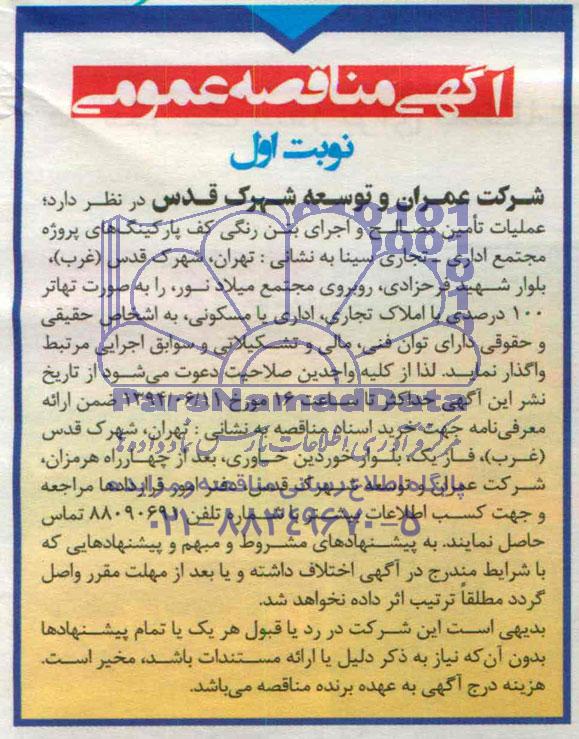 آگهی مناقصه عمومی
نوبت اول
شرکت عمران و توسعه شهرک قدس در نظر دارد؛
عملیات تأمین مصالح و اجرای بتن رنگی کف پارکینگ‌های پروژه
مجتمع اداری - تجاری سینا به نشانی : تهران، شهرک قدس (غرب)،
بلوار شهید فرحزادی، روبروی مجتمع میلاد نور، را به صورت تهاتر
۱۰۰ درصدی با املاک تجاری، اداری یا مسکونی، به اشخاص حقیقی
و حقوقی دارای توان فنی، مالی و تشکیلاتی و سوابق اجرایی مرتبط
واگذار نماید. لذا از کلیه واجدین صلاحیت دعوت می‌شود از تاریخ
نشر این آگهی حداکثر تا ساعت ۱۶ مورخ ۱۳۹۴/۰۶/۱۱ ضمن ارائه
معرفی‌نامه جهت خرید اسناد مناقصه به نشانی : تهران، شهرک قدس
(غرب)، فاز یک، بلوار خوردین خاوری، بعد از چهارراه هرمزان،
شرکت عمران و توسعه شهرک قدس، دفتر امور قراردادها مراجعه
و جهت کسب اطلاعات بیشتر با شماره تلفن ۸۸۰۹۰۶۹۱ تماس
حاصل نمایند. به پیشنهادهای مشروط و مبهم و پیشنهادهایی که
با شرایط مندرج در آگهی اختلاف داشته و یا بعد از مهلت مقرر واصل
گردد مطلقاً ترتیب اثر داده نخواهد شد.
بدیهی است این شرکت در رد یا قبول هر یک یا تمام پیشنهادها
بدون آن‌که نیاز به ذکر دلیل یا ارائه مستندات باشد، مخیر است.
هزینه درج آگهی به عهده برنده مناقصه می‌باشد.
ParsNamadData
پایگاه اطلاع رسانی مناقصه و مزایده
۰۲۱-۸۸۳۴۹۶۷۰-۵